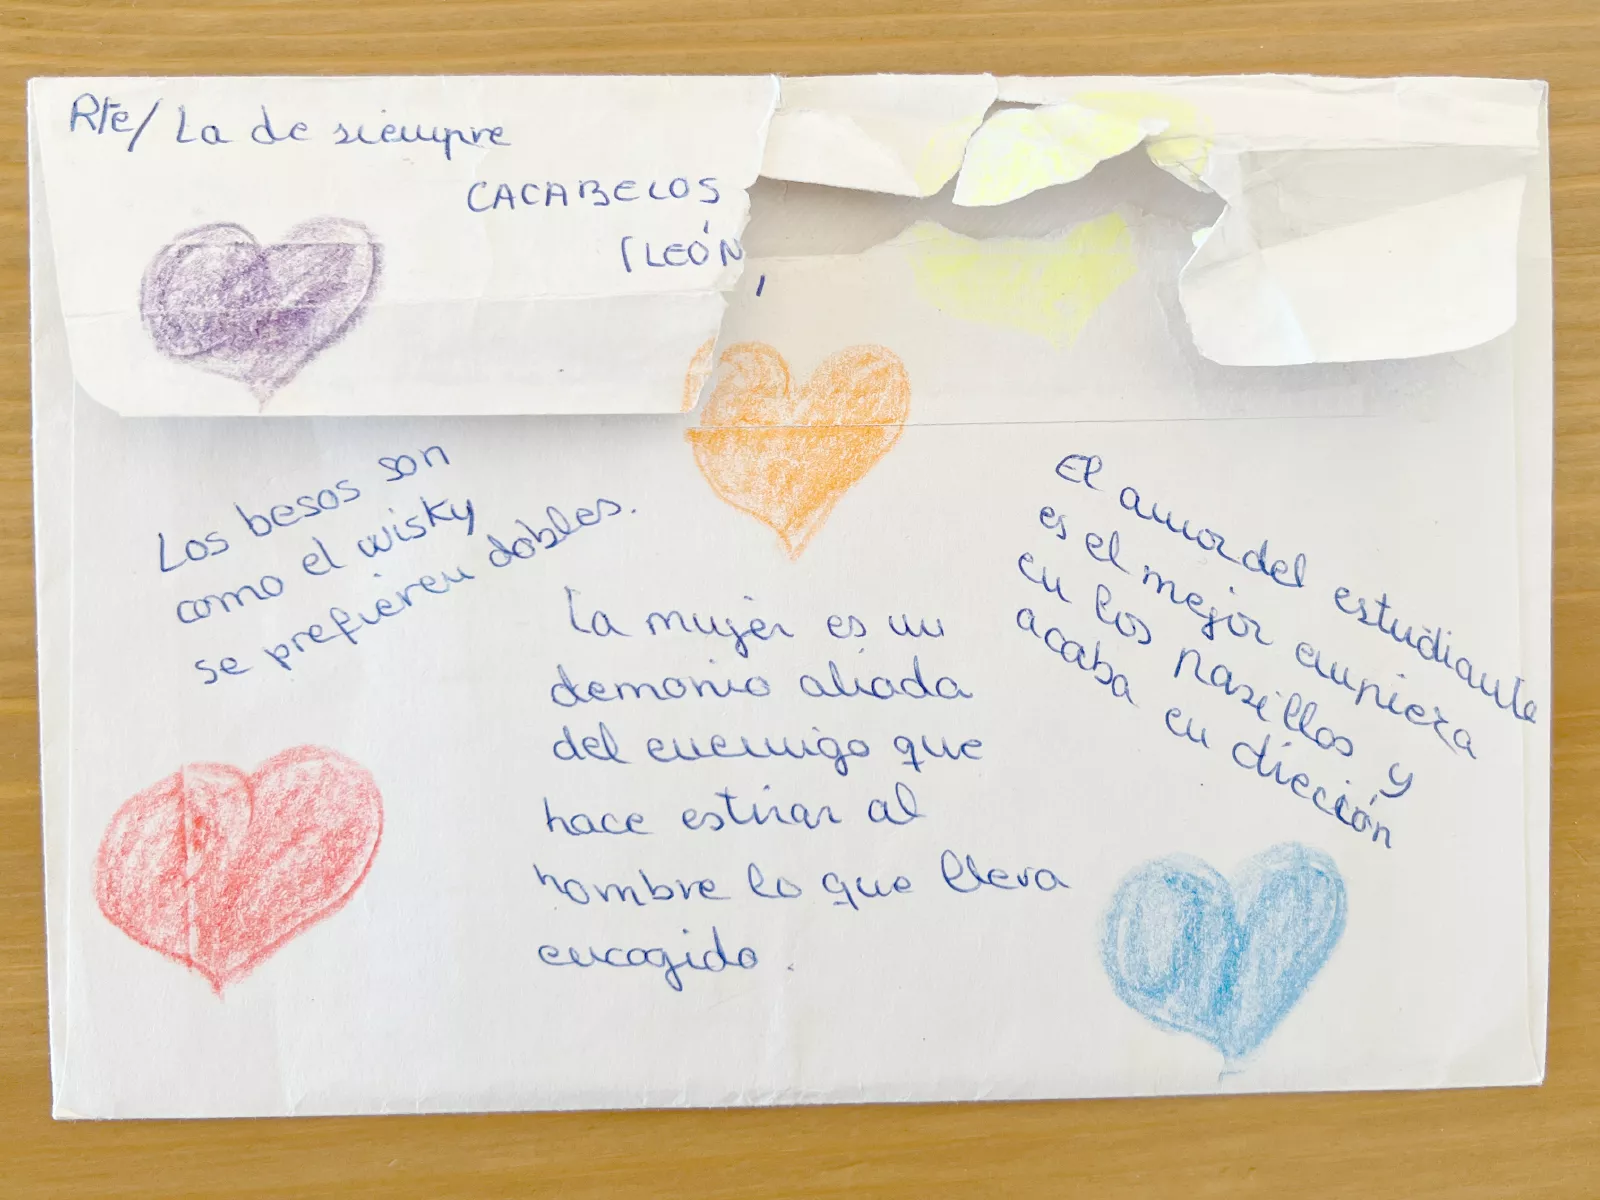 Rte/ La de siempre
CACABELOS
(LEÓN)
Los besos son
como el wisky
se prefieren dobles.
La mujer es un
demonio aliada
del enemigo que
hace estirar al
hombre lo que lleva
encogido.
El amor del estudiante
es el mejor empieza
en los pasillos y
acaba en dicción